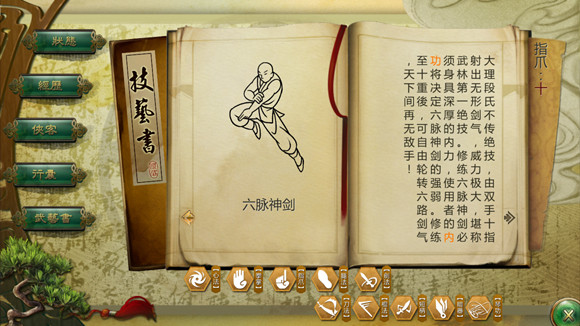 狀態
經歷
俠客
行囊
武藝書
技藝書
六脉神剑
指爪：十
大理段氏不传绝技，由双手十指
射出无形剑气，威力极大，堪称
武林第一绝技。修练六脉神剑必
须身具深厚的内力，使用者的内
功将决定六脉神剑的强弱。修练
至十重後，可自由轮转六路剑气
，天下间再无敌手！